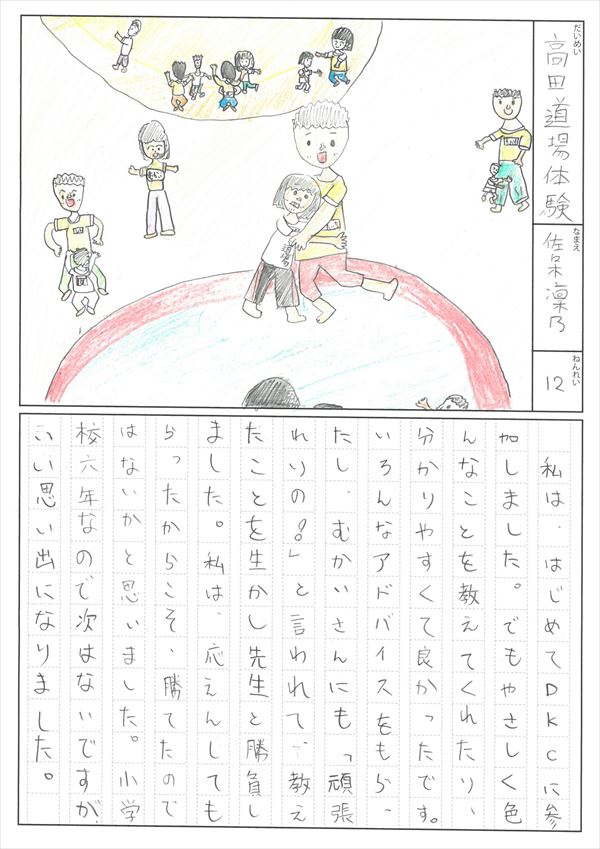 だいめい
高田道場体験
なまえ
佐々木凜乃
ねんれい
12
道場
私は、はじめてDKCに参
加しました。でもやさしく色
んなことを教えてくれたり、
分かりやすくて良かったです。
いろんなアドバイスをもらっ
たし、むかいさんにも「頑張
れりの!!」と言われて、教え
たことを生かし先生と勝負し
ました。私は、応えんしても
らったからこそ、勝てたので
はないかと思いました。小学
校六年なので次はないですが、
いい思い出になりました。